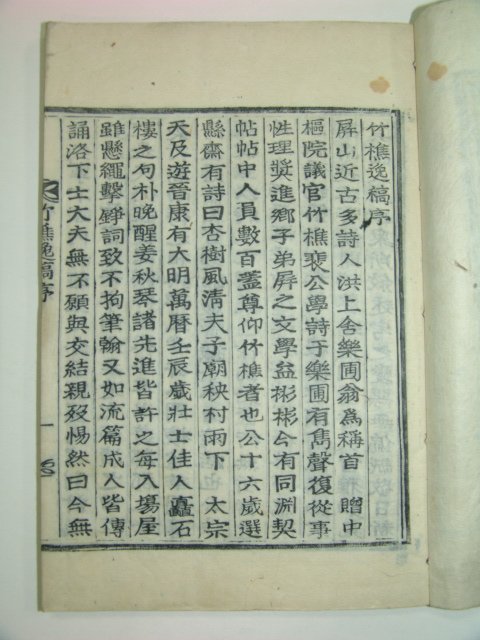 竹樵逸稿序
屛山近古多詩人洪上舍樂圃翁爲稱首 贈中
樞院議官竹樵裵公學詩于樂圃有雋聲復從事
性理奬進鄕子弟屛之文學益彬彬今有同淵契
帖帖中人員數百蓋尊仰竹樵者也公十六歲選
縣齋有詩曰杏樹風淸夫子廟秧村雨下 太宗
天及遊晉康有大明萬曆壬辰歲壯士佳人矗石
樓之句朴晩醒姜秋琴諸先進皆許之每入場屋
雖懸繩擊錚詞致不拘筆翰又如流篇成人皆傳
誦洛下士大夫無不願與交結親歿惕然曰今無
竹樵逸稿序 一